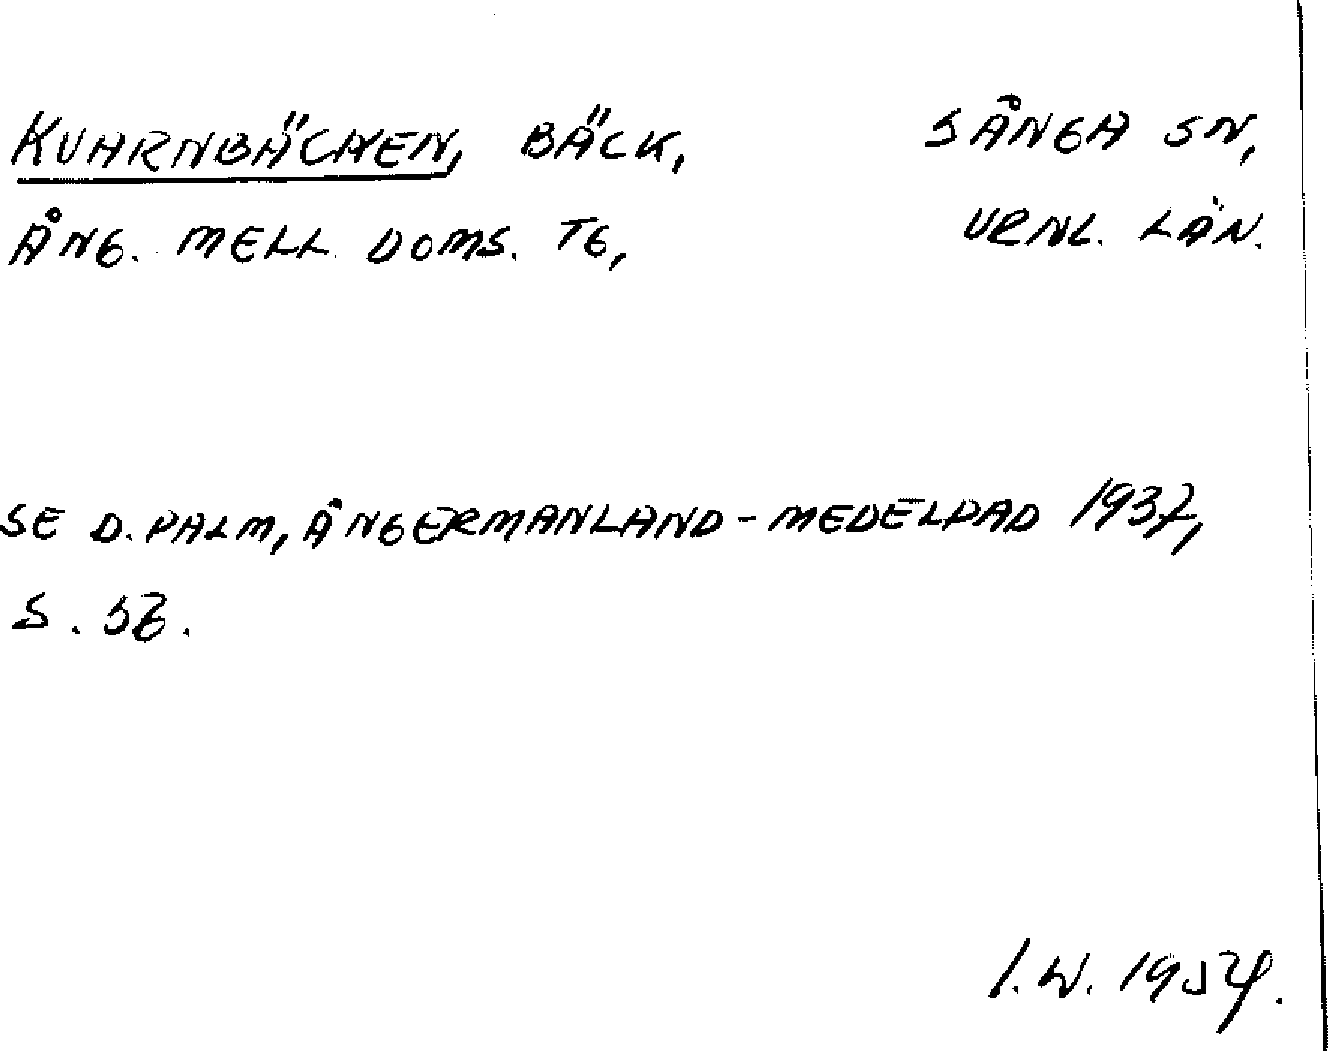 KVARNBÄCKEN, BÄCK, SÅNGA SN,
ÅNG. MELL. DOMS. TG, VRNL. LÄN.
SE D. PALM, ÅNGERMANLAND-MEDELPAD 1937,
S. 58.
I. W. 1954.